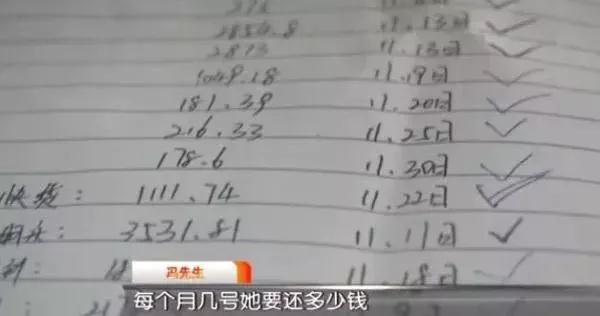 2854.8 11.13日 ✓
2813 11.13日 ✓
1049.18 11.19日 ✓
181.39 11.20日 ✓
216.33 11.25日 ✓
178.6 11.30日 ✓
快贷: 1111.74 11.22日 ✓
3531.81 11.11日 ✓
11.18日
冯先生
每个月几号她要还多少钱